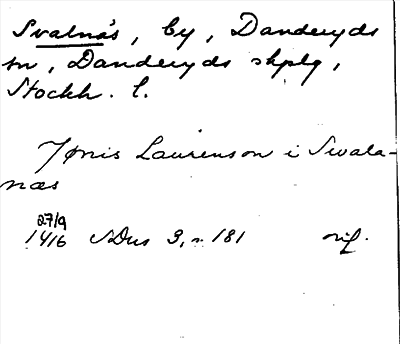 Svalnäs, by, Danderyds
sn, Danderyds skplg,
Stockh. l.
Jønis Laurenson i Swala-
næs
27/9
1416 SDns 3, s. 181 orig.